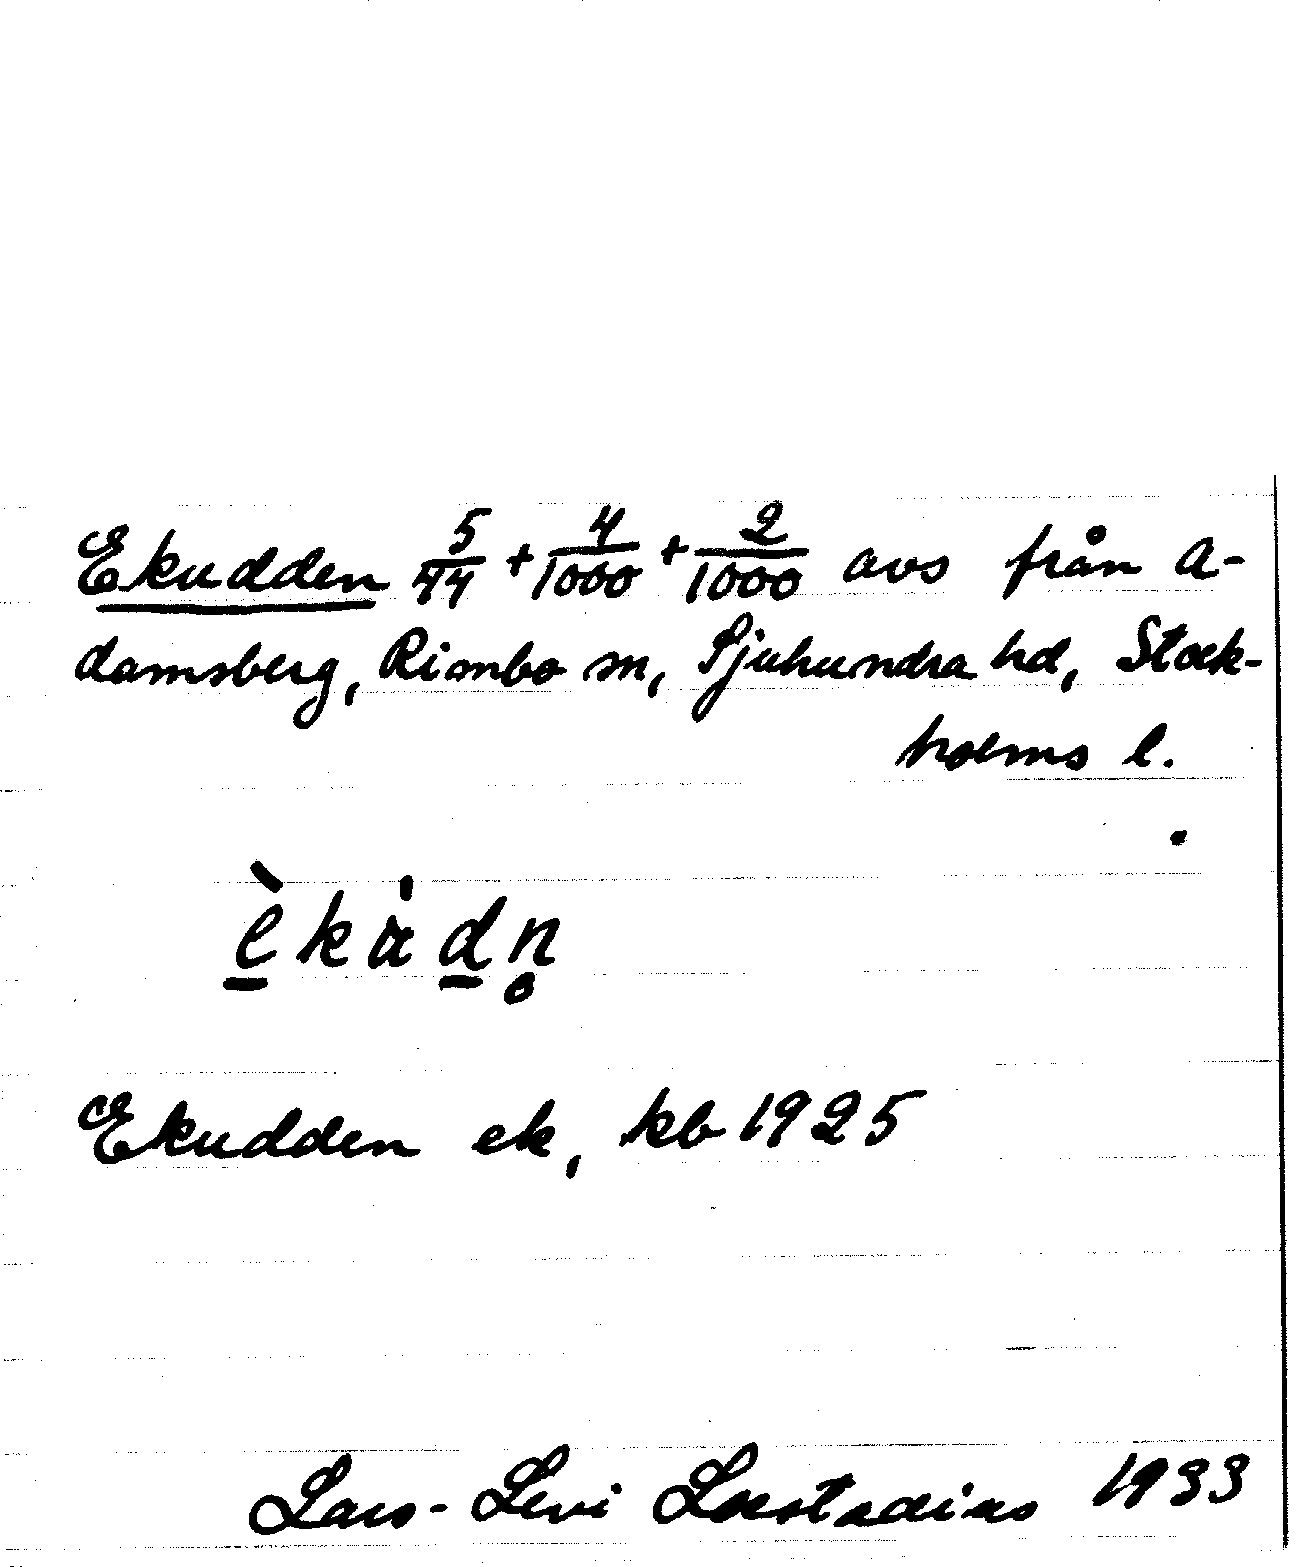 Ekudden 5/44 + 4/1000 + 2/1000 avs från A-
damsberg, Rimbo sn, Sjuhundra hd, Stock-
holms l.
Ekudden ek, kb 1925
Lars-Levi Læstadius 1933